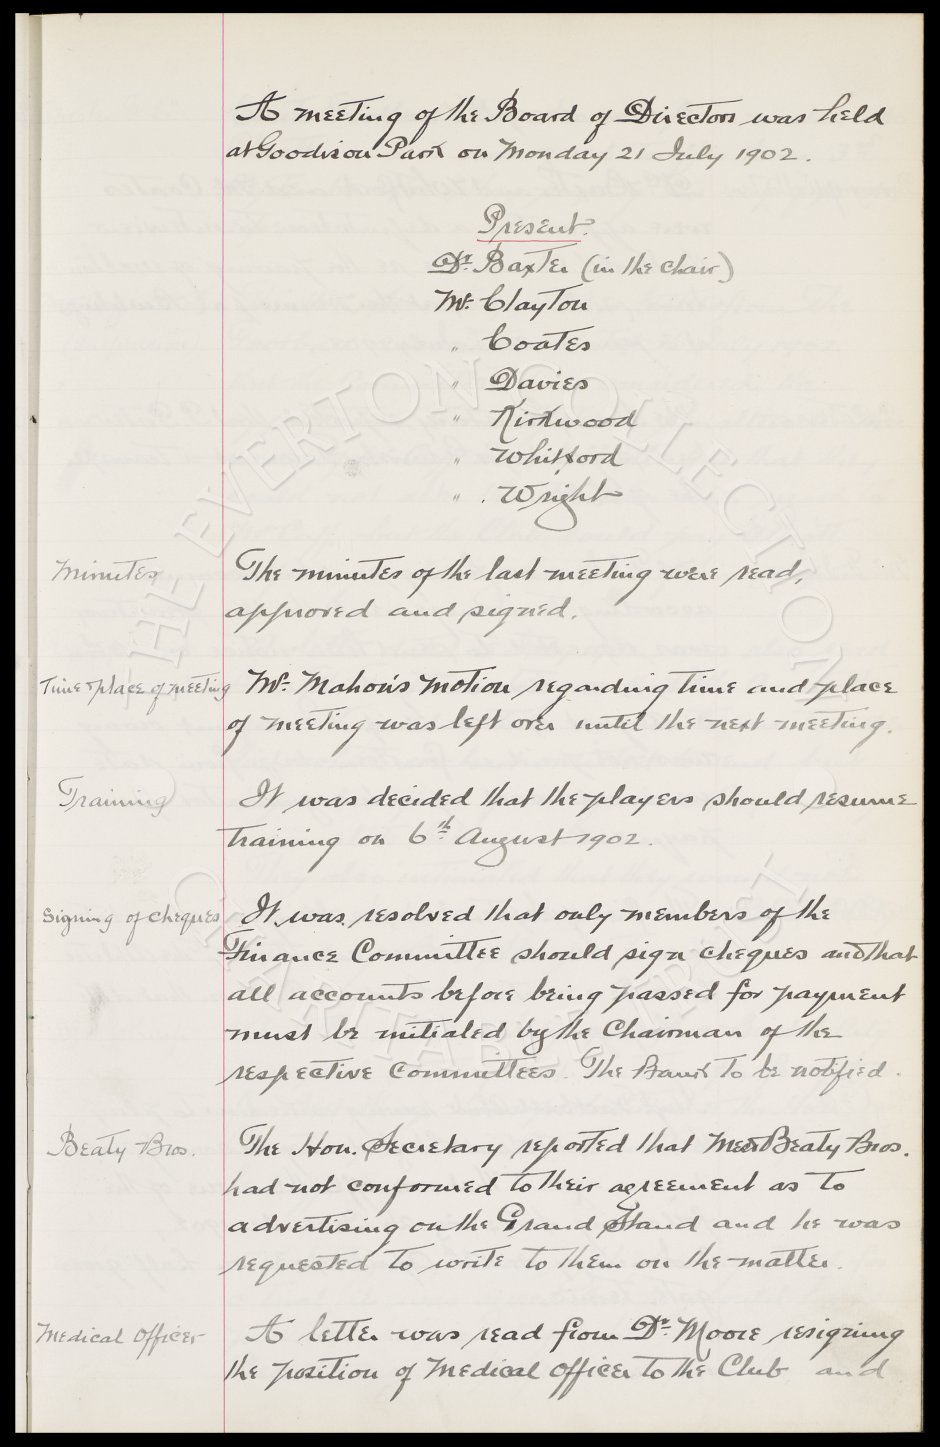 A meeting of the Board of Directors was held
at Goodison Park on Monday 21 July 1902.
Present.
Dr. Baxter (in the chair)
Mr. Clayton
" Coates
" Davies
" Kirkwood
" Whitford
" Wright
Minutes
The minutes of the last meeting were read,
approved and signed.
Time & place of meeting
Mr. Mahon's motion regarding time and place
of meeting was left over until the next meeting.
Training
It was decided that the players should resume
training on 6th August 1902.
Signing of cheques
It was resolved that only members of the
Finance Committee should sign cheques and that
all accounts before being passed for payment
must be initialed by the Chairman of the
respective Committees. The Bank to be notified.
Beaty Bros.
The Hon. Secretary reported that Messrs Beaty Bros.
had not conformed to their agreement as to
advertising on the Grand Stand and he was
requested to write to them on the matter.
Medical Officer
A letter was read from Dr. Moore resigning
the position of Medical Officer to the Club and
THE EVERTON COLLECTION
CHARITABLE TRUST